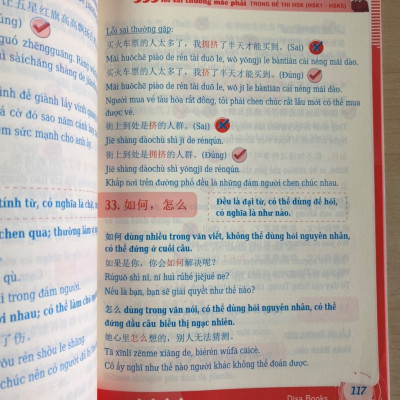 lỗi sai thường mắc phải TRONG ĐỀ THI HSK (HSK1 - HSK5)
Lỗi sai thường gặp:
买火车票的人太多了，我拥挤了半天才能买到。(Sai)
Mǎi huǒchē piào de rén tài duō le, wǒ yōngjǐ le bàntiān cái néng mǎi dào.
买火车票的人太多了，我挤了半天才能买到。(Đúng)
Mǎi huǒchē piào de rén tài duō le, wǒ jǐ le bàntiān cái néng mǎi dào.
Người mua vé tàu hỏa rất đông, tôi phải chen chúc rất lâu mới có thể mua
được vé.
街上到处是挤的人群。(Sai)
Jiē shàng dàochù shì jǐ de rénqún.
街上到处是拥挤的人群。(Đúng)
Jiē shàng dàochù shì yōngjǐ de rénqún.
Khắp nơi trên đường phố đều là những đám người chen chúc nhau.
33. 如何，怎么
Đều là đại từ, có thể dùng để hỏi,
có nghĩa là như nào.
如何 dùng nhiều trong văn viết, không thể dùng hỏi nguyên nhân,
có thể đứng ở cuối câu.
如果是你，你会如何解决呢?
Rúguǒ shì nǐ, nǐ huì rúhé jiějué ne?
Nếu là bạn, bạn sẽ giải quyết như thế nào?
怎么 dùng trong văn nói, có thể dùng hỏi nguyên nhân, có thể
đứng đầu câu biểu thị ngạc nhiên.
她心里怎么想的，别人无法猜测。
Tā xīnlǐ zěnme xiǎng de, biérén wúfǎ cāicè.
Cô ấy nghĩ như thế nào người khác không thể đoán được.
117
Disa Books